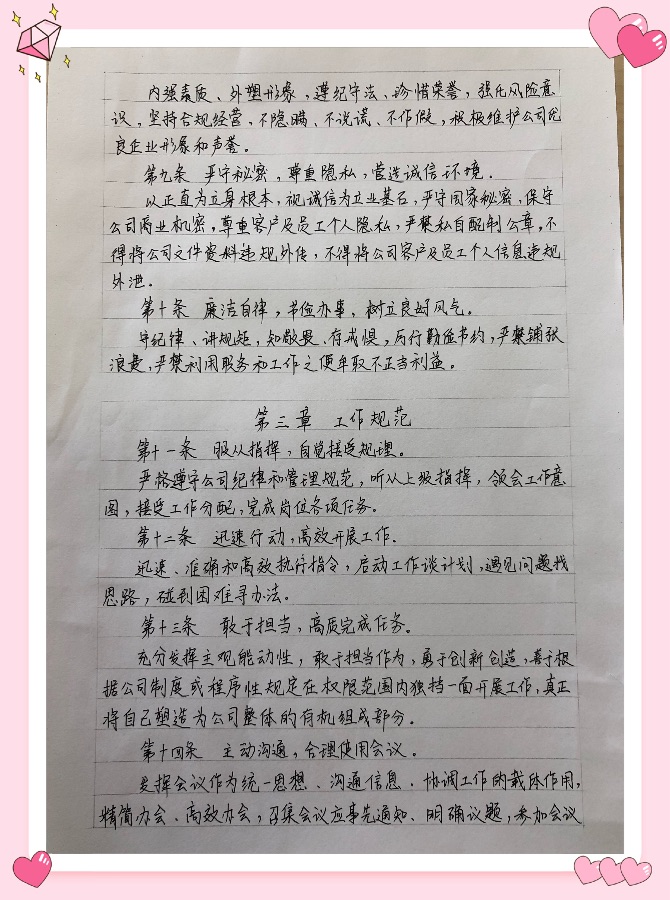 内强素质、外塑形象，遵纪守法、珍惜荣誉，强化风险意
识，坚持合规经营、不隐瞒、不说谎、不作假，积极维护公司优
良企业形象和声誉。
第九条 严守秘密，尊重隐私，营造诚信环境。
以正直为立身根本，视诚信为立业基石，严守国家秘密，保守
公司商业机密，尊重客户及员工个人隐私，严禁私自配制公章，不
得将公司文件资料违规外传，不得将公司客户及员工个人信息违规
外泄。
第十条 廉洁自律，节俭办事、树立良好风气。
守纪律、讲规矩，知敬畏、存戒惧，厉行勤俭节约，严禁铺张
浪费，严禁利用职务和工作之便牟取不正当利益。
第三章 工作规范
第十一条 服从指挥，自觉接受规理。
严格遵守公司纪律和管理规范，听从上级指挥，领会工作意
图，接受工作分配，完成岗位各项任务。
第十二条 迅速行动，高效开展工作.
迅速、准确和高效执行指令，启动工作谈计划，遇见问题找
思路，碰到困难寻办法。
第十三条 敢于担当，高质完成任务。
充分发挥主观能动性，敢于担当作为，勇于创新创造，善于根
据公司制度或程序性规定在权限范围内独挡一面开展工作，真正
将自己塑造为公司整体的有机组成部分.
第十四条 主动沟通，合理使用会议.
发挥会议作为统一思想、沟通信息、协调工作的载体作用，
精简办会、高效办会，召集会议应事先通知、明确议题，参加会议